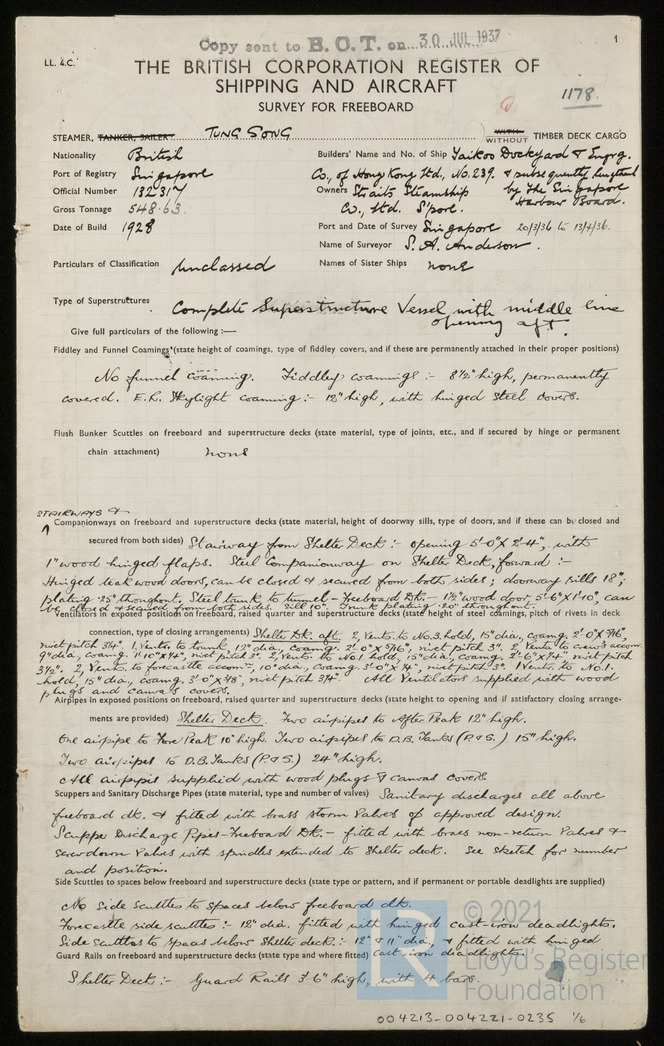 Copy sent to B.O.T. on 30 JUL 1937
1
LL. 4.C.
THE BRITISH CORPORATION REGISTER OF
SHIPPING AND AIRCRAFT
SURVEY FOR FREEBOARD
1178.
STEAMER, TANKER, SAILER TUNG SONG WITH WITHOUT TIMBER DECK CARGO
Nationality British
Builders' Name and No. of Ship Taikoo Dockyard & Engrg.
Port of Registry Singapore
Co., of Hong Kong Ltd, No. 239. & subsequently lengthened
Official Number 132317
Owners Straits Steamship by The Singapore
Gross Tonnage 548.63.
Co., Ltd. S'pore. Harbour Board.
Date of Build 1928
Port and Date of Survey Singapore 20/3/36 to 13/4/36.
Name of Surveyor S. A. Anderson.
Particulars of Classification unclassed
Names of Sister Ships none
Type of Superstructures Complete Superstructure Vessel with middle line
opening aft.
Give full particulars of the following :—
Fiddley and Funnel Coamings (state height of coamings, type of fiddley covers, and if these are permanently attached in their proper positions)
No funnel coaming. Fiddley coamings :- 8½" high, permanently
covered. E.R. Skylight coaming :- 12" high, with hinged steel covers.
Flush Bunker Scuttles on freeboard and superstructure decks (state material, type of joints, etc., and if secured by hinge or permanent
chain attachment) none
STAIRWAYS &
Companionways on freeboard and superstructure decks (state material, height of doorway sills, type of doors, and if these can be closed and
secured from both sides) Stairway from Shelter Deck :- opening 5'-0" X 2'-4", with
1" wood hinged flaps. Steel Companionway on Shelter Deck, forward :-
Hinged teak wood doors, can be closed & secured from both sides ; doorway sills 18" ;
plating .25" throughout. Steel trunk to tunnel - Freeboard Dk. - 1½" wood door, 5'-6" X 1'-10", can
be closed & secured from both sides. Sill 10". Trunk plating .20" throughout.
Ventilators in exposed positions on freeboard, raised quarter and superstructure decks (state height of steel coamings, pitch of rivets in deck
connection, type of closing arrangements) Shelter Dk. aft. 2, Vents. to No.3 hold, 15" dia, coamg. 2'-0" X 7/16",
rivet pitch 3¼". 1, Vent. to trunk, dia, coamg. 2'-0" X rivet pitch 3". 2, Vents. to crew's accom.
9" dia, coamg. rivet pitch 3". 2, Vents. to No.1 hold, 15" dia, coamg. rivet pitch
3½". 2, Vents. to forecastle accom., 10" dia., coamg. 3'-0" X rivet pitch 3". 1, Vents. to No.1.
hold, 15" dia., coamg. 3'-0" X rivet pitch 3¼". All Ventilators supplied with wood
plugs and canvas covers.
Airpipes in exposed positions on freeboard, raised quarter and superstructure decks (state height to opening and if satisfactory closing arrange-
ments are provided) Shelter Deck. Two airpipes to After Peak 12" high.
One airpipe to Fore Peak 10" high. Two airpipes to D.B. Tanks (P. & S.) 15" high.
Two airpipes to D.B. Tanks (P. & S.) 24" high.
All airpipes supplied with wood plugs & canvas covers.
Scuppers and Sanitary Discharge Pipes (state material, type and number of valves) Sanitary discharges all above
freeboard dk. & fitted with brass storm valves of approved design.
Scupper Discharge Pipes - Freeboard Dk. - fitted with brass non-return valves &
screwdown valves with spindles extended to Shelter deck. See sketch for number
and position.
Side Scuttles to spaces below freeboard and superstructure decks (state type or pattern, and if permanent or portable deadlights are supplied)
No side scuttles to spaces below freeboard dk.
Forecastle side scuttles :- 12" dia. fitted with hinged cast-iron deadlights.
Side scuttles to spaces below Shelter deck :- 12" & 11" dia., & fitted with hinged
Guard Rails on freeboard and superstructure decks (state type and where fitted) cast-iron deadlights.
Shelter Deck :- Guard Rails 3'-6" high, with 4 bars.
© 2021
Lloyd's Register
Foundation
004213-004221-0235 1/6